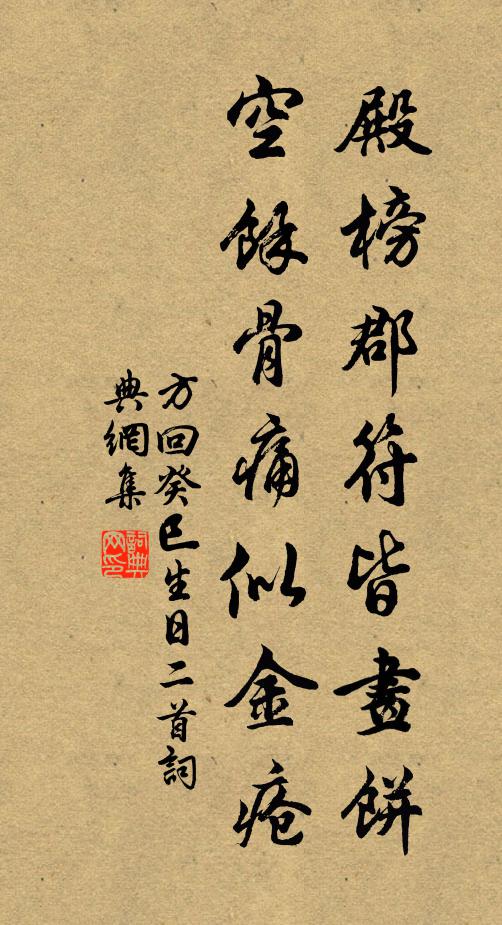 殿榜郡符皆畫餅
空餘骨痛似金瘡
方回癸巳生日二首詞
典網集
詞典網印